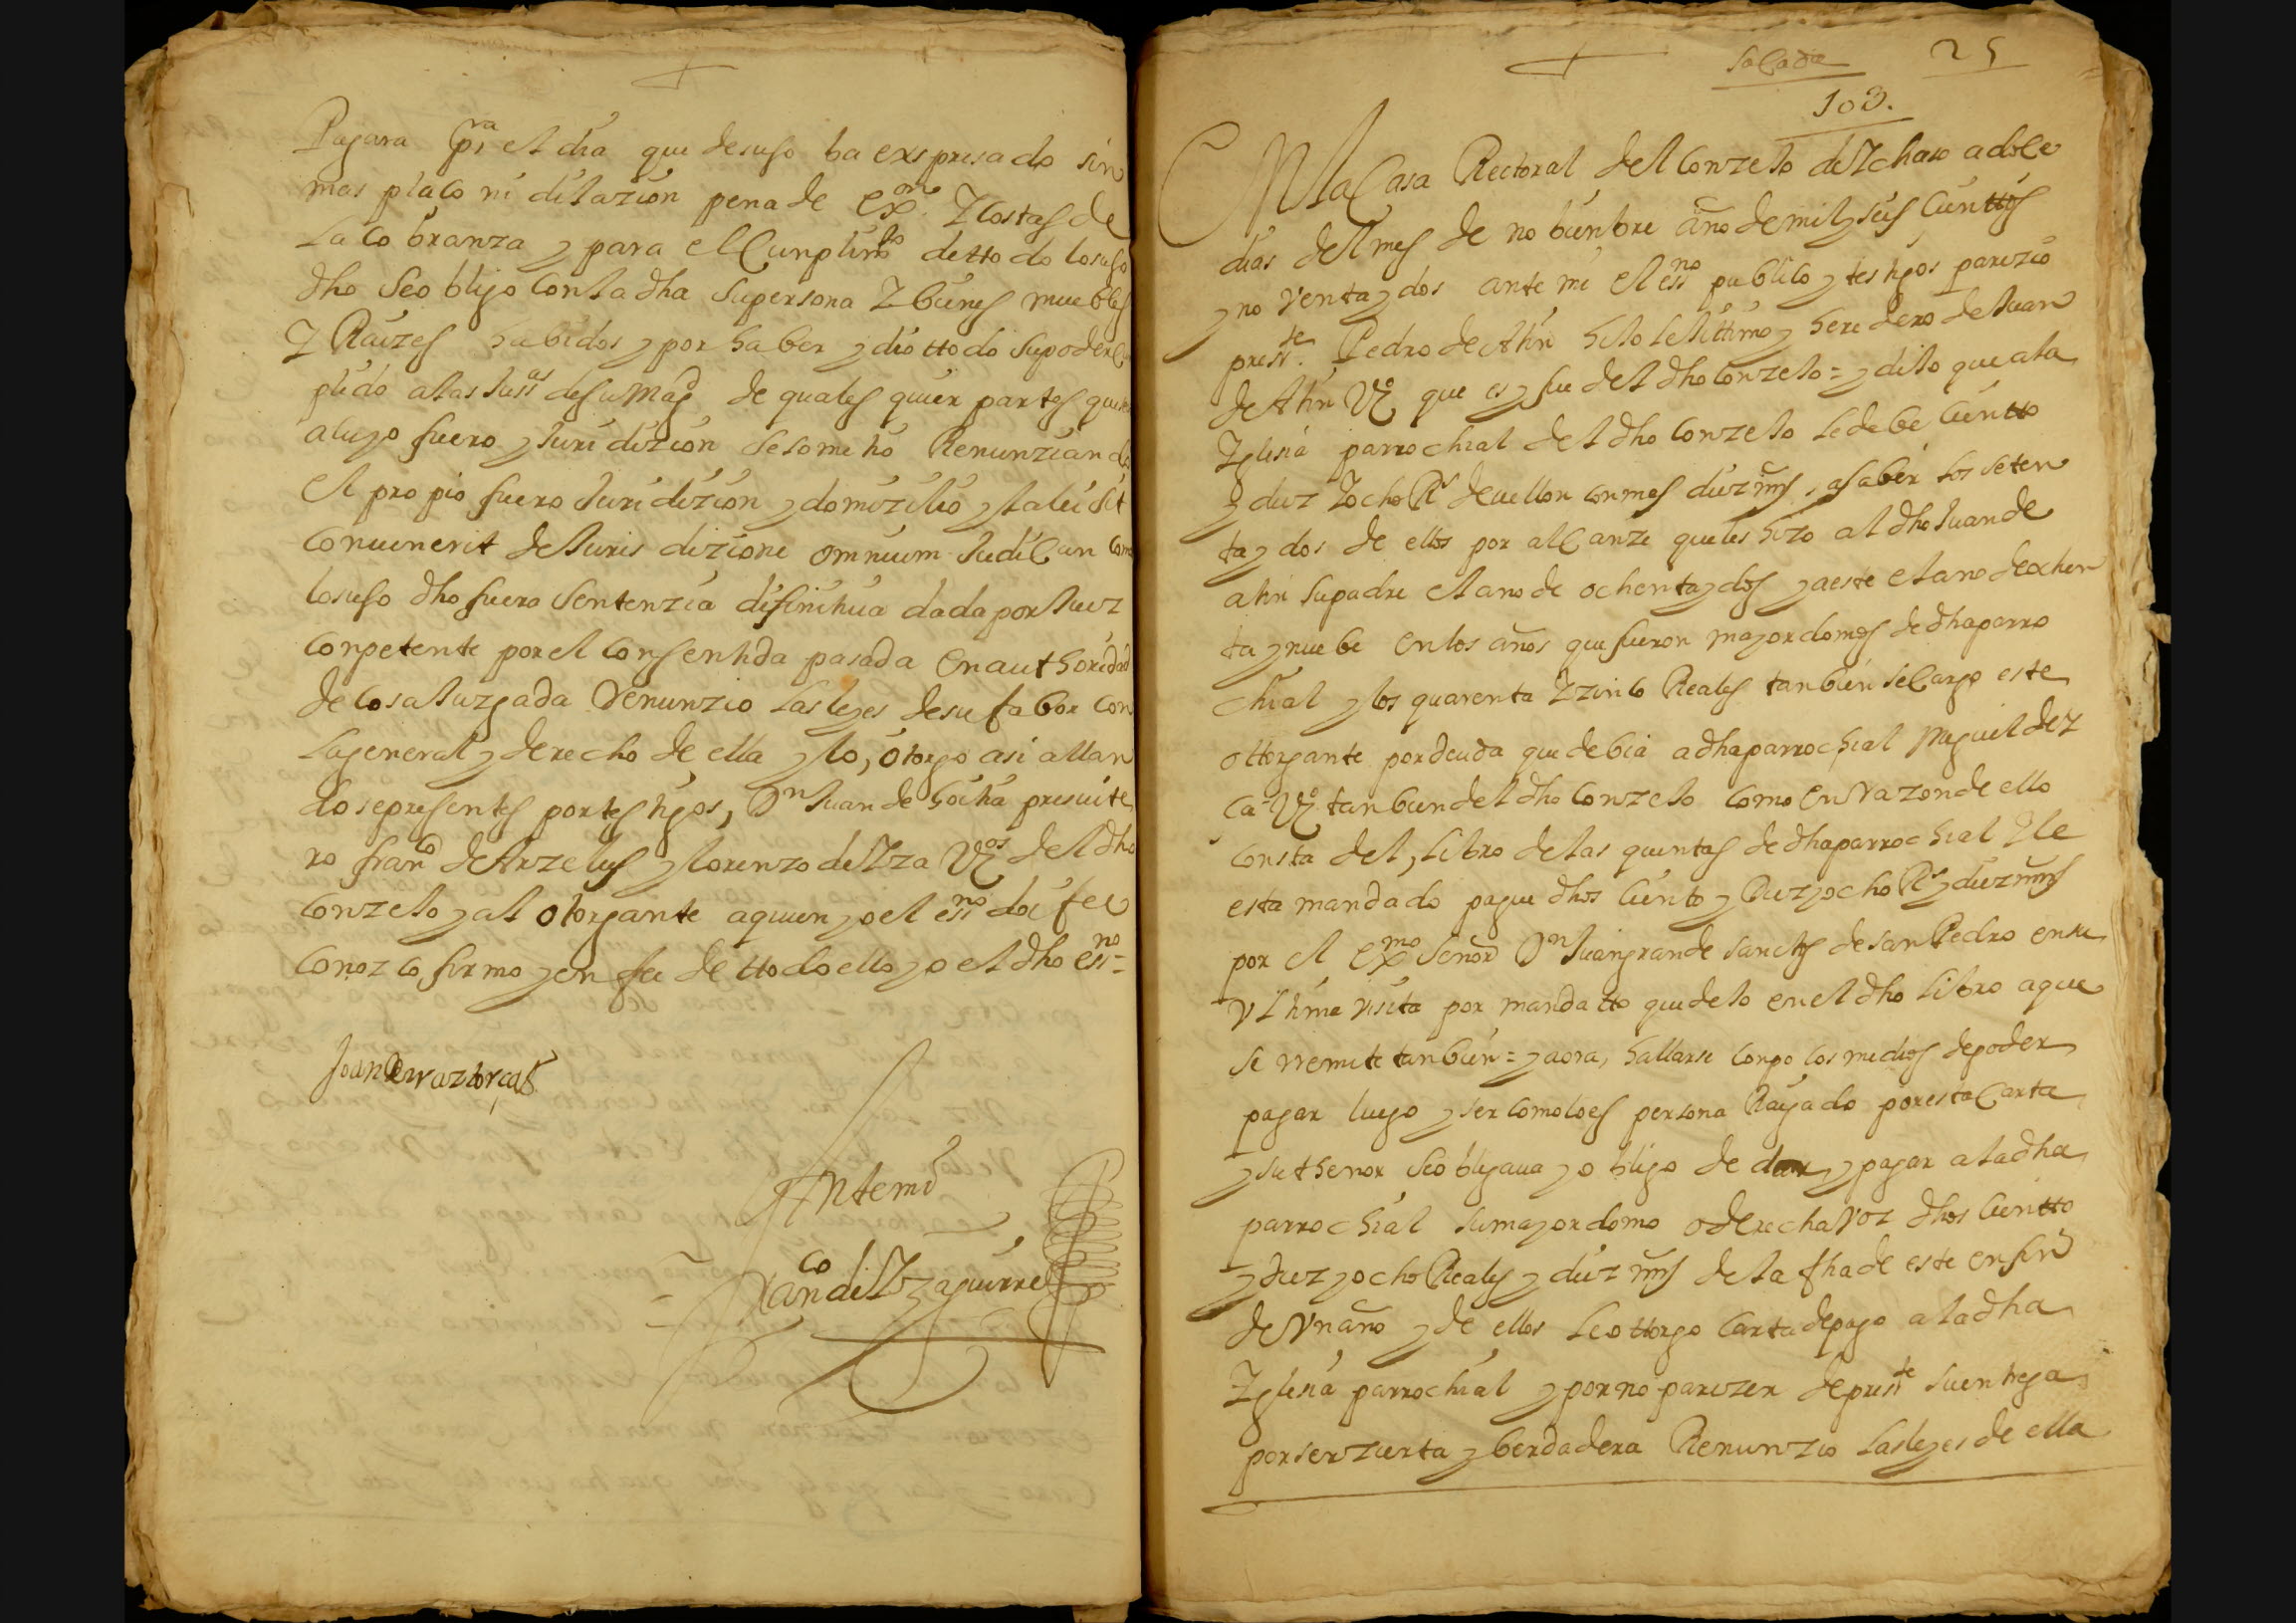 Pagara pra el dia que desuso ba expresado sin
mas plaço ni dilazion pena de exon y costas de
la cobranza y para el cunplimto de ttodo lo suso
dho se obligo con la dha su persona y bienes muebles
y Raizes habidos y por haber y dio ttodo su poder
plido a las Jusas de su Magd de quales quier partes que
a cuyo fuero y Juridizion se sometio Renunziando
el propio fuero Juridizion y domizilio y la lei sit
convenerit de Jurisdizione omnium Judicun como
lo suso dho fuera sentenzia difinitiua dada por Juez
conpetente por el consentida pasada en authoridad
de cosa Juzgada Renunzio las leyes de su fabor con
la general y derecho de ella y lo, otorgo asi allan
dose presentes por testigos, Dn Juan de Goitia presuite
ro franco de Arzelus y lorenzo de Yza Vos del dho
conzejo y al otorgante a quien yo el essno doi fee
conozco firmo y en fee de ttodo ello yo el dho essno =
Joan de
Antemi
franco de Yzaguirre
sacada 25
103.
En la Casa Rectoral del conzejo de Ychaso a doce
dias del mes de nobienbre año de mil y seis cienttos
y noventa y dos ante mi el essno publico y testigos parezio
presste Pedro de Atin hijo lejittimo y heredero de Juan
de Atin Vo que es y fue del dho conzejo = y dijo que a la
Yglesia parrochial del dho conzejo le debe cientto
y diez y ocho Rs de vellon con mas diez mrs, a saber los seten
ta y dos de ellos por alcanze que les hizo al dho Juan de
atin su padre el ano de ochenta y dos y a este el ano de ochen
ta y nuebe en los años que fueron mayordomos de dha parro
chial y los quarenta y zinco Reales tanbien se cargo este
ottorgante por deuda que debia a dha parrochial Miguel de Yz
ca Vo tanbien del dho conzejo como en razon de ello
consta del, libro de las quentas de dha parrochial y le
esta mandado pague dhos ciento y diez y ocho Rs y diez mrs
por el exmo señor Dn Juan grande sanctos de san Pedro en su
vltima visita por mandatto que dejo en el dho libro a que
se rremite tanbien = y aora, hallarse con po cos medios de poder
pagar luego y ser como lo es persona Raygado por esta Carta
y su thenor se obligaua y obligo de dar y pagar a la dha
parrochial su mayordomo o derecha voz dhos cientto
y diez y ocho Reales y diez mrs de la fha de este en fin
de vn año y de ellos le ottorgo carta de pago a la dha
Yglesia parrochial y por no parezer de presste su entrega
por ser zierta y berdadera Renunzio las leyes de ella